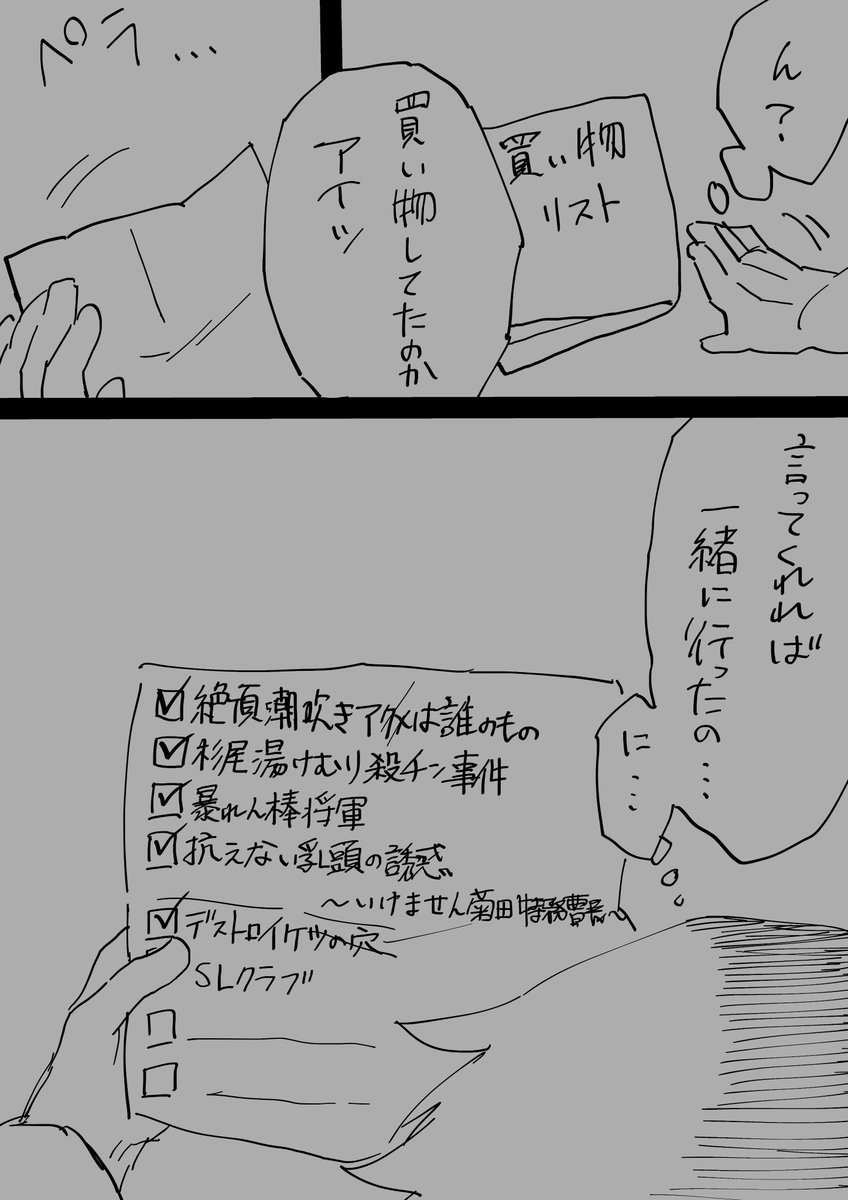 ん？
買い物
リスト
買い物してたのか
アイツ
ペラ…
言ってくれれば
一緒に行ったの…
に…
絶頂潮吹きアクメは誰のもの
杉尾湯けむり殺チン事件
暴れん棒将軍
抗えない乳頭の誘惑
〜いけません菊田特務曹長〜
デストロイケツの穴
SLクラブ